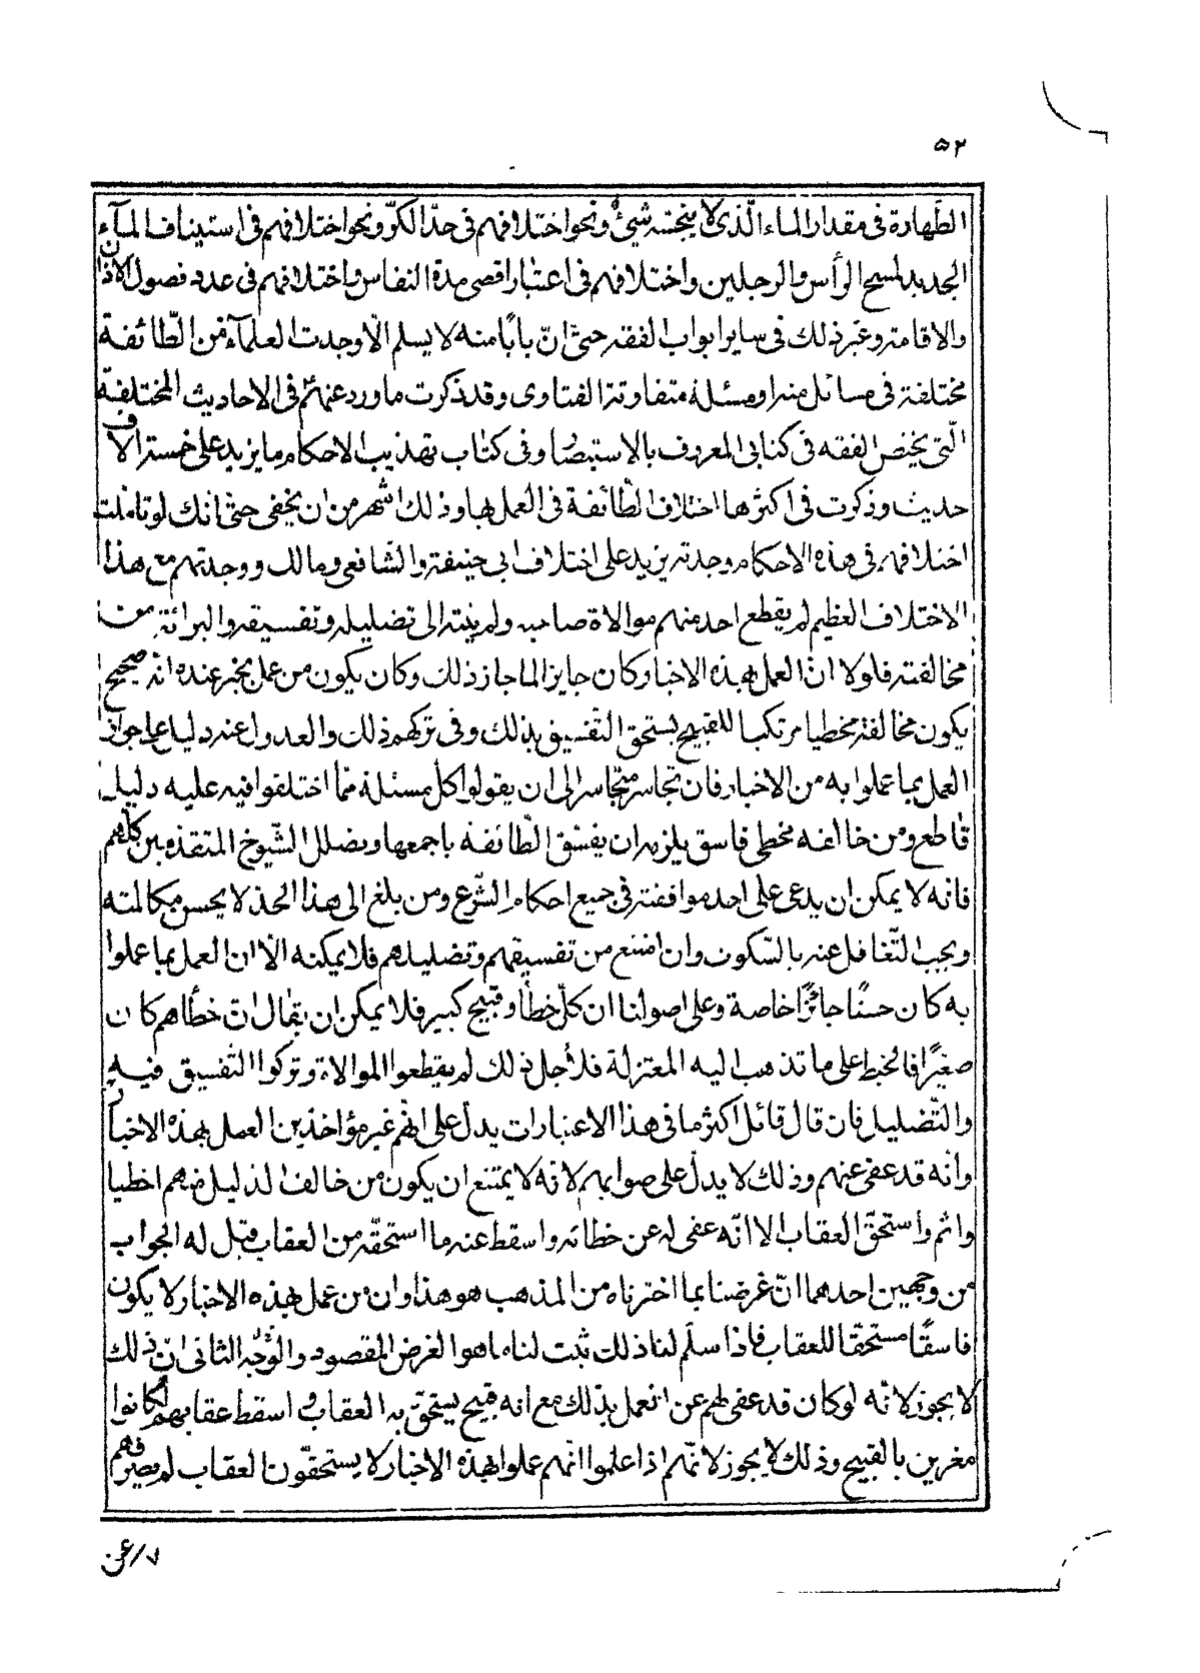 ۵۲
الطهارة فى مقدار الماء الّذى لا ينجّسه شيئٌ ونحو اختلافهم فى حدّ الكرّ ونحو اختلافهم فى استيناف المآء
الجديد لمسح الرأس والرجلين واختلافهم فى اعتبار اقصى مدة النفاس واختلافهم فى عدد فصول الاذان
والاقامة وغير ذلك فى ساير ابواب الفقه حتّى انّ بابًا منه لا يسلم الّا وجدت العلمآء من الطّائفة
مختلفة فى مسائل منه او مسئلة متفاوتة الفتاوى وقد ذكرت ما ورد عنهمّ فى الاحاديث المختلفة
الّتى يختصّ الفقه فى كتابى المعروف بالاستبصار وفى كتاب تهذيب الاحكام ما يزيد على خمسة الاف
حديث وذكرت فى اكثرها اختلاف الطّائفة فى العمل بها وذلك اشهر من ان يخفى حتّى انّك لو تاملت
اختلافهم فى هذه الاحكام وجدته يزيد على اختلاف ابى حنيفة والشّافعى ومالك ووجدتهم مع هذا
الاختلاف العظيم لم يقطع احد منهم موالاة صاحبه ولم ينته الى تضليله وتفسيقه والبرائة من
مخالفته فلولا انّ العمل بهذه الاخبار كان جايزا لما جاز ذلك وكان يكون من عمل بخبر عنده انه صحيح
يكون مخالفه مخطيا مرتكبا للقبيح يستحق التّفسيق بذلك وفى تركهم ذلك والعدول عنه دليل على جواز
العمل بما عملوا به من الاخبار فان تجاسر متجاسر الى ان يقول كل مسئلة ممّا اختلفوا فيه عليه دليل
قاطع ومن خالفه مخطى فاسق يلزمه ان يفسّق الطّائفة باجمعها ويضلل الشّيوخ المتقدمين كلّهم
فانه لا يمكن ان يدعى على احد موافقته فى جميع احكام الشّرع ومن بلغ الى هذا الحدّ لا يحسن مكالمته
ويجب التّغافل عنه بالسّكوت وان امتنع من تفسيقهم وتضليلهم فلا يمكنه الّا ان العمل بما عملوا
به كان حسنًا جائزًا خاصة وعلى اصولنا ان كلّ خطأ وقبيح كبير فلا يمكن ان يقال انّ خطأهم كان
صغيرًا فانحبط على ما تذهب اليه المعتزلة فلأجل ذلك لم يقطعوا الموالاة وتركوا التّفسيق فيه
والتّضليل فان قال قائل اكثر ما فى هذا الاعتبار ان يدلّ على انّهم غير مؤاخذين العمل بهذه الاخبار
وانّه قد عفى عنهم وذلك لا يدلّ على صوابهم لانه لا يمتنع ان يكون من خالف الدليل منهم اخطيا
واثم واستحقّ العقاب الا انّه عفى له عن خطائه واسقط عنه ما استحقّه من العقاب قيل له الجواب
من وجهين احدهما انّ غرضنا بما اخترناه من المذهب هو هذا وان من عمل بهذه الاخبار لا يكون
فاسقًا مستحقّا للعقاب فاذا سلّم لنا ذلك ثبت لنا ما هو الغرض المقصود والوجه الثانى انّ ذلك
لا يجوز لانّه لو كان قد عفى لهم عن العمل بذلك مع انه قبيح يستحقّ به العقاب واسقط عقابهم لكانوا
مغرين بالقبيح وذلك لا يجوز لانّهم اذا علموا انّهم عملوا بهذه الاخبار لا يستحقّون العقاب لم يصرفهم